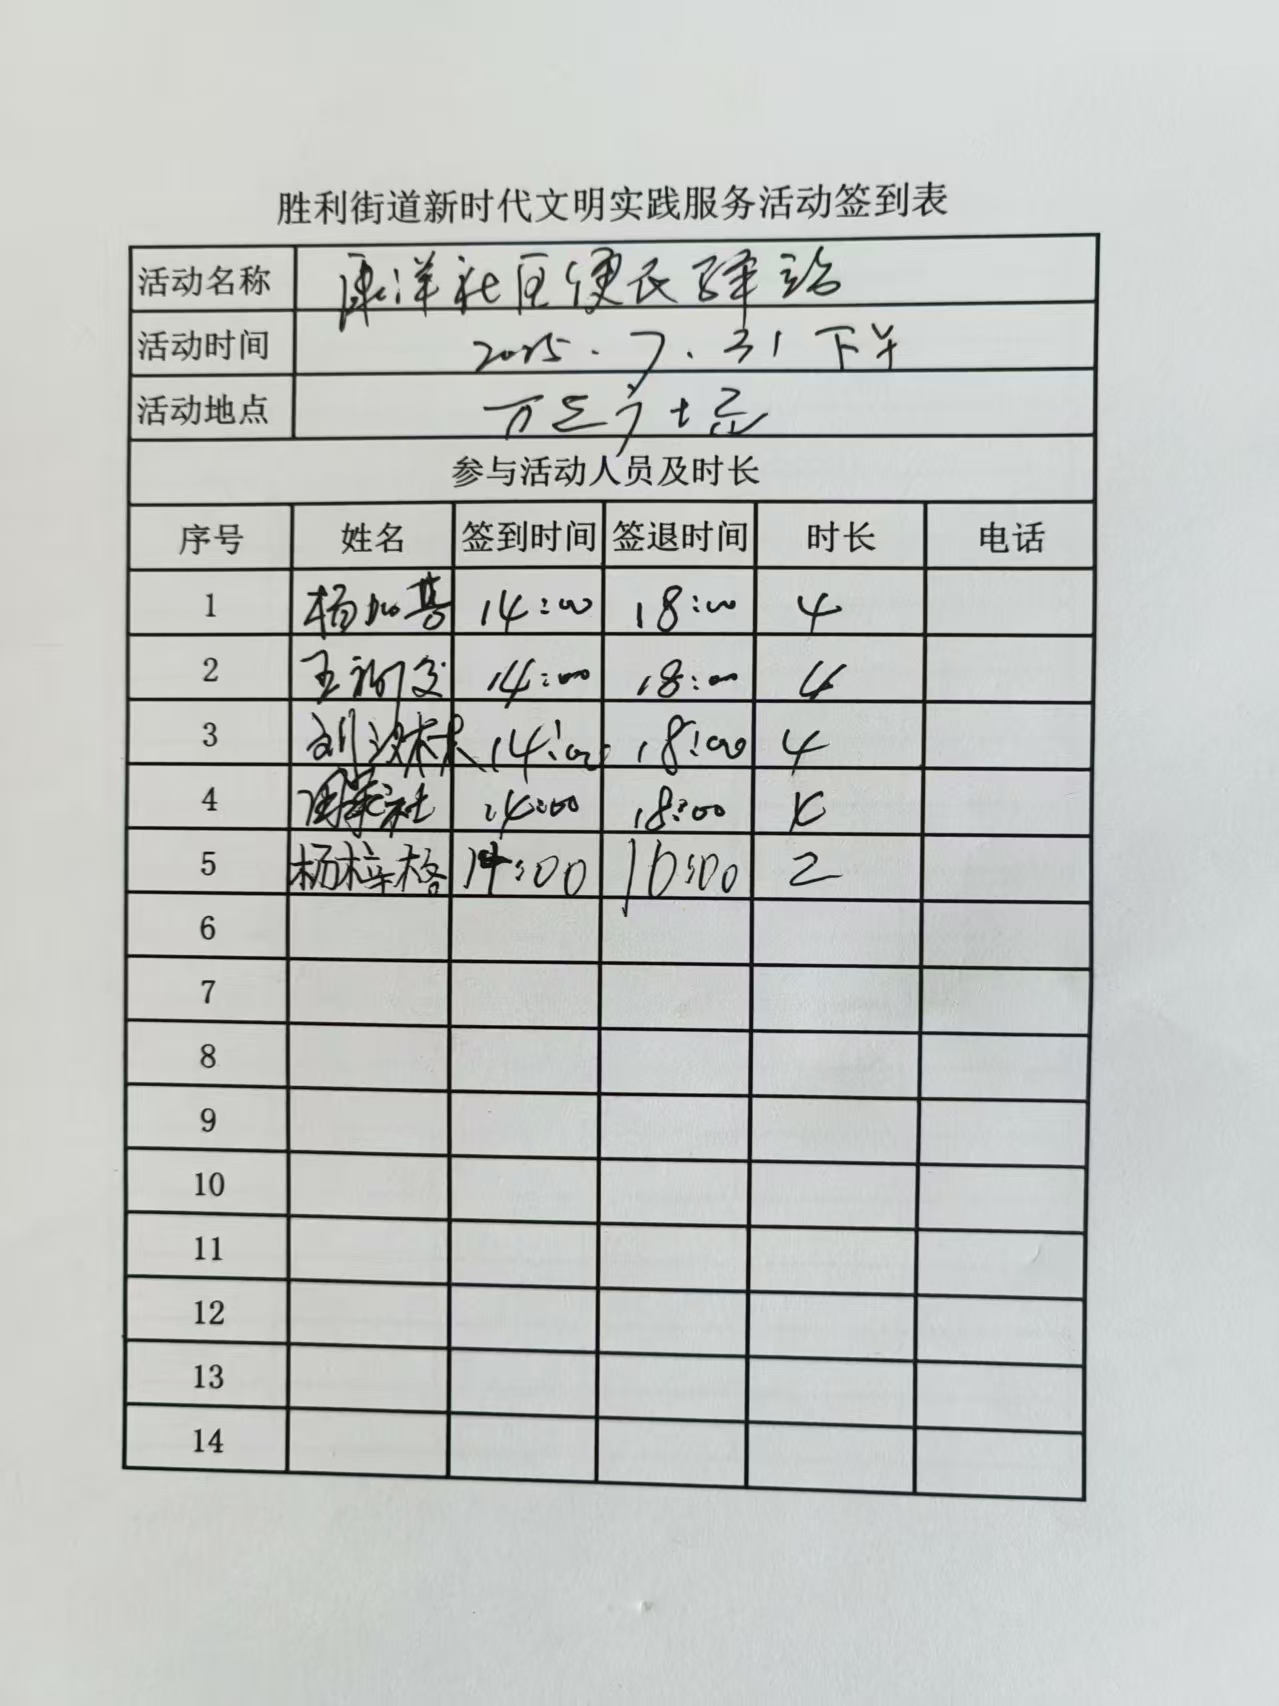 胜利街道新时代文明实践服务活动签到表
活动名称 康洋社区便民驿站
活动时间 2025.7.31 下午
活动地点 万达广场
参与活动人员及时长
序号 姓名 签到时间 签退时间 时长 电话
1 杨 14:00 18:00 4
2 王 14:00 18:00 4
3 刘 14:00 18:00 4
4 周 14:00 18:00 4
5 杨梓格 14:00 16:00 2
6
7
8
9
10
11
12
13
14